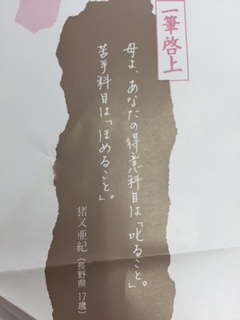 一筆啓上
母よ、あなたの得意科目は「叱ること」。
苦手科目は「ほめること」。
猪又亜紀（長野県 17歳）